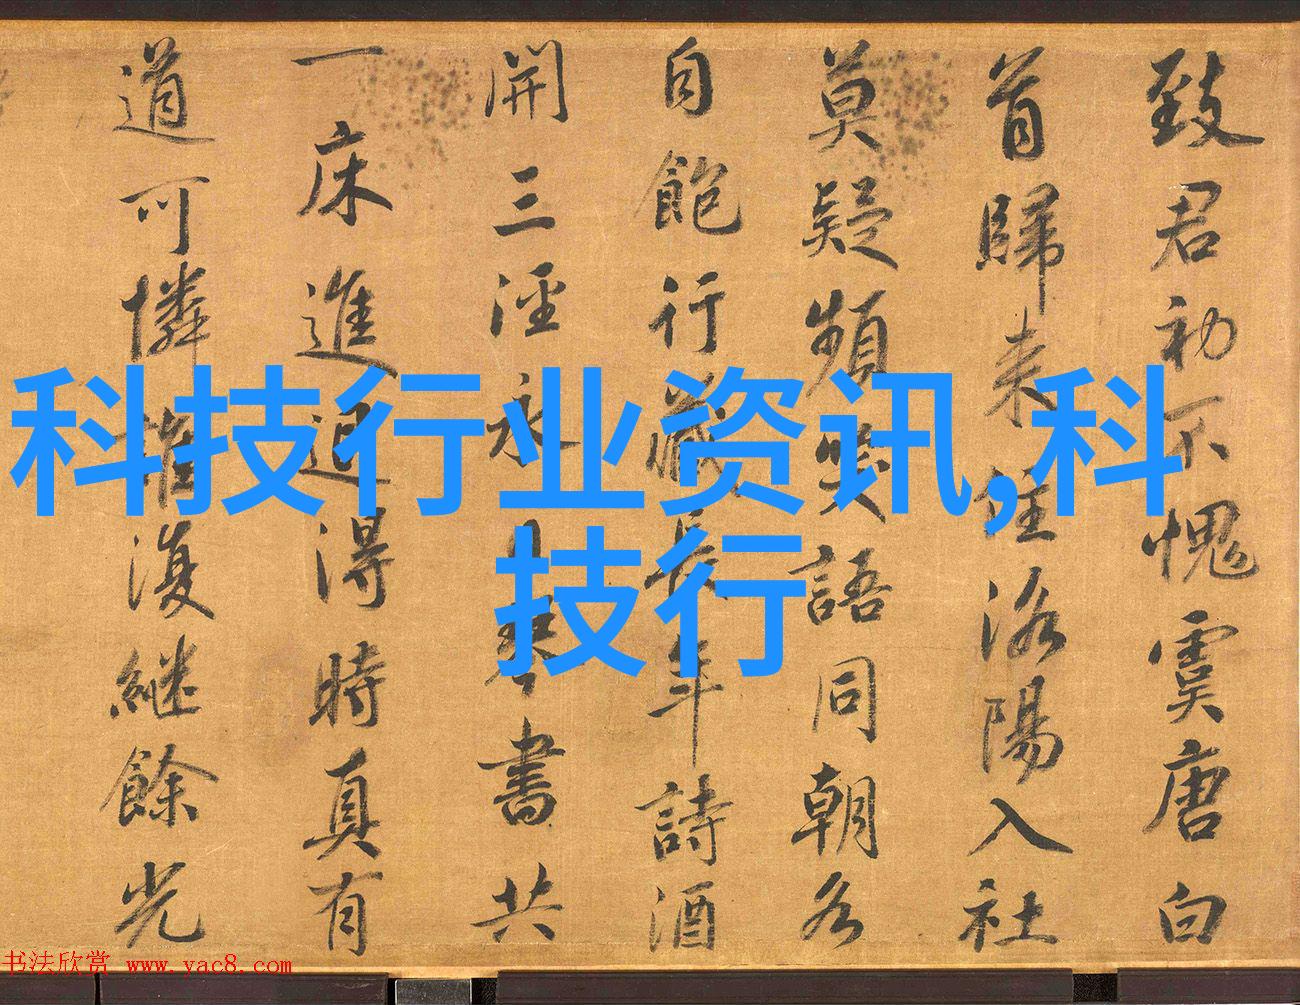 致君初不愧虞唐白
首歸来住洛陽入社
莫疑頻咲語同朝各
自飽行藏長年詩酒
開三涇永日琴書共
一床進退得時真有
道可憐誰復繼餘光
科技行业资讯,科
技行
书法欣赏 www.yac8.com